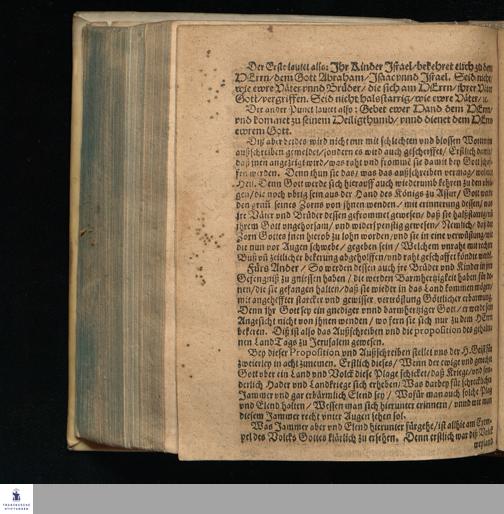 Der Erste lautet also: Jhr Kinder Jsrael/bekehret euch zu dem
HErrn/dem Gott Abraham/Jsaac vnnd Jsrael. Seid nicht
wie ewre Väter vnnd Brüder/die sich am HErrn/jhrer Väter
Gott/vergriffen. Seid nicht halsstarrig/wie ewre Väter/ꝛc.
Der ander Punct lautet also: Gebet ewer Hand dem HErrn
vnd kommet zu seinem Heiligthumb/vnnd dienet dem HErrn
ewrem Gott.
Diß aber beides wird nicht nur mit schlechten vnd blossen Worten im
außschreiben gemeldet/sondern es wird auch gescherffet/Erstlich damit/
daß jnen angezeigt wird/was raht vnd fromme sie damit bey Gott
fen werden. Denn thun sie das/was das außschreiben vermag/
Denn Gott werde sich hierauff auch wiederumb kehren zu den vbri-
gen/die noch vbrig sein aus der Hand des Königs zu Assur/Gott
den grim seines Zorns von jhnen wenden/mit erinnerung dessen/was
jre Väter vnd Brüder dessen gefrommet gewesen/daß sie halßstarrig
jhrem Gott vngehorsam/vnd widerspenstig gewesen/Nemlich/daß
Zorn Gottes jnen hierob zu lohn worden/vnd sie in eine verwüstung
die nun vor Augen schwebe/gegeben sein/Welchem vnraht mit
Buß vñ zeitlicher bekerung abgeholffen/vnd raht geschafft köndte werden.
Fürs Ander/So werden dessen auch jre Brüder vnd Kinder im
Gefengniß zu gniessen haben/die werden Barmhertzigkeit haben für de-
nen/die sie gefangen halten/daß sie wieder in das Land kommen mögen/
mit angeheffter starcker vnd gewisser vertröstung Göttlicher erbarmung.
Denn jhr Gott sey ein gnediger vnnd barmhertziger Gott/er werde sein
Angesicht nicht von jhnen wenden/wo fern sie sich nur zu dem HErrn
bekeren. Diß ist also das Außschreiben vnd die proposition des gehalte-
nen LandTags zu Jerusalem gewesen.
Bey dieser Proposition vnd Außschreiben stellet vns der H. Geist für
zweierley in acht zunemen. Erstlich dieses/Wenn der ewige vnd gerechte
Gott vber ein Land vnd Volck diese Plage schicket/daß Kriege/vnd son-
derlich Hader vnd Landkriege sich erheben/Was darbey für schrecklicher
Jammer vnd gar erbärmlich Elend sey/Wofür man auch solche Plag
vnd Elend halten/Wessen man sich hierunter erinnern/vnnd wie man
diesem Jammer recht vnter Augen sehen sol.
Was Jammer aber vnd Elend hierunter fürgehe/ist allhie am Exem-
pel des Volcks Gottes klärlich zu ersehen. Denn erstlich war diß Volck
weyland
FRANCKESCHE
STIFTUNGEN